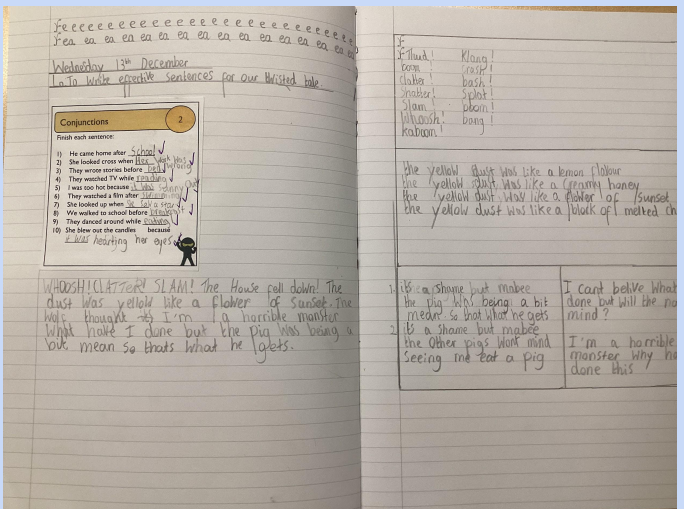 fe e e e e e e e e e e e e e e e e e e e e
fea ea ea ea ea ea ea ea ea ea ea ea ea
Wednesday 13th December
L.o To Write effective Sentences for our twisted tale.
Conjunctions 2
Finish each sentence:
1) He came home after School
2) She looked cross when Her work was wrong
3) They wrote stories before bed
4) They watched TV while reading
5) I was too hot because it was sunny out
6) They watched a film after swimming
7) She looked up when a star
8) We walked to school before breakfast
9) They danced around while eating
10) She blew out the candles because
it was hearting her eyes
WHOOSH! CLATTER! SLAM! The House fell down! The
dust was yellow like a flower of sunset. The
wolf thought I'm a horrible monster
What have I done but the pig was being a
bit mean so thats what he gets.
f
Thud! Klang!
boom crash!
clatter! bash!
Shatter! Splat!
Slam! boom!
Whoosh! bang!
kaboom!
the yellow dust was like a lemon flavour
the yellow dust was like a creamy honey
the yellow dust was like a flower of sunset
the yellow dust was like a block of melted ch
1. it's a shame but mabee
the pig was being a bit
mean. so that what he gets
2. it's a shame but mabee
the other pigs wont mind
seeing me eat a pig
I cant belive what
done but will the
mind?
I'm a horrible
monster why
done this